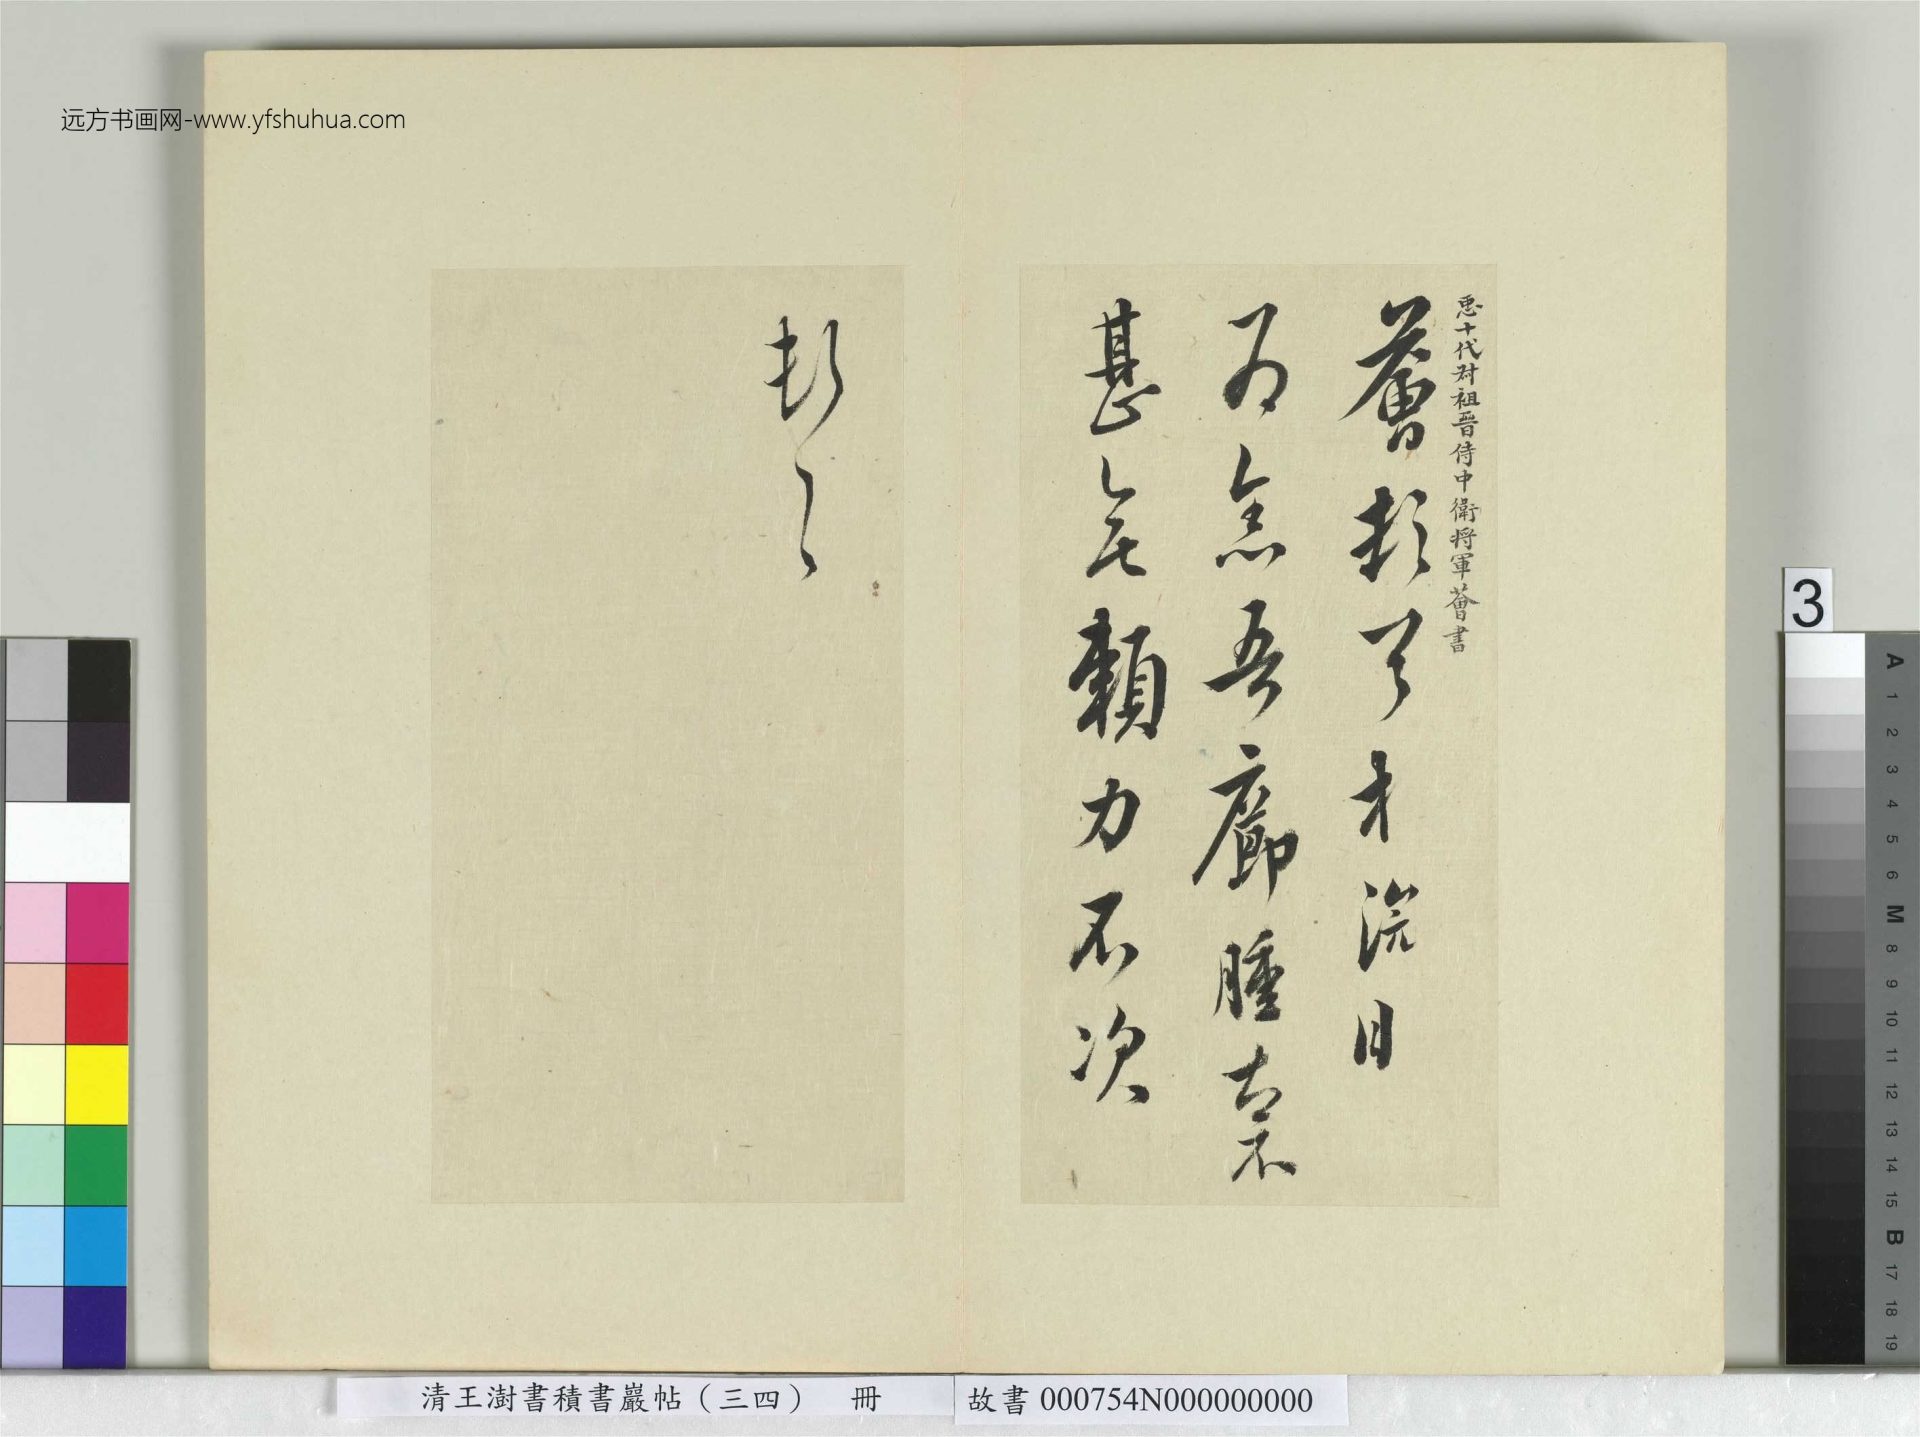 远方书画网-www.yfshuhua.com
𢘑十代祖晉侍中衛將軍薈書
薈頓首才日
為念吾癤腫
甚無賴力不次
頓首
3
A 1 2 3 4 5 6 M 8 9 10 11 12 13 14 15 B 17 18 19
清王澍書積書巖帖（三四） 冊
故書 000754N000000000